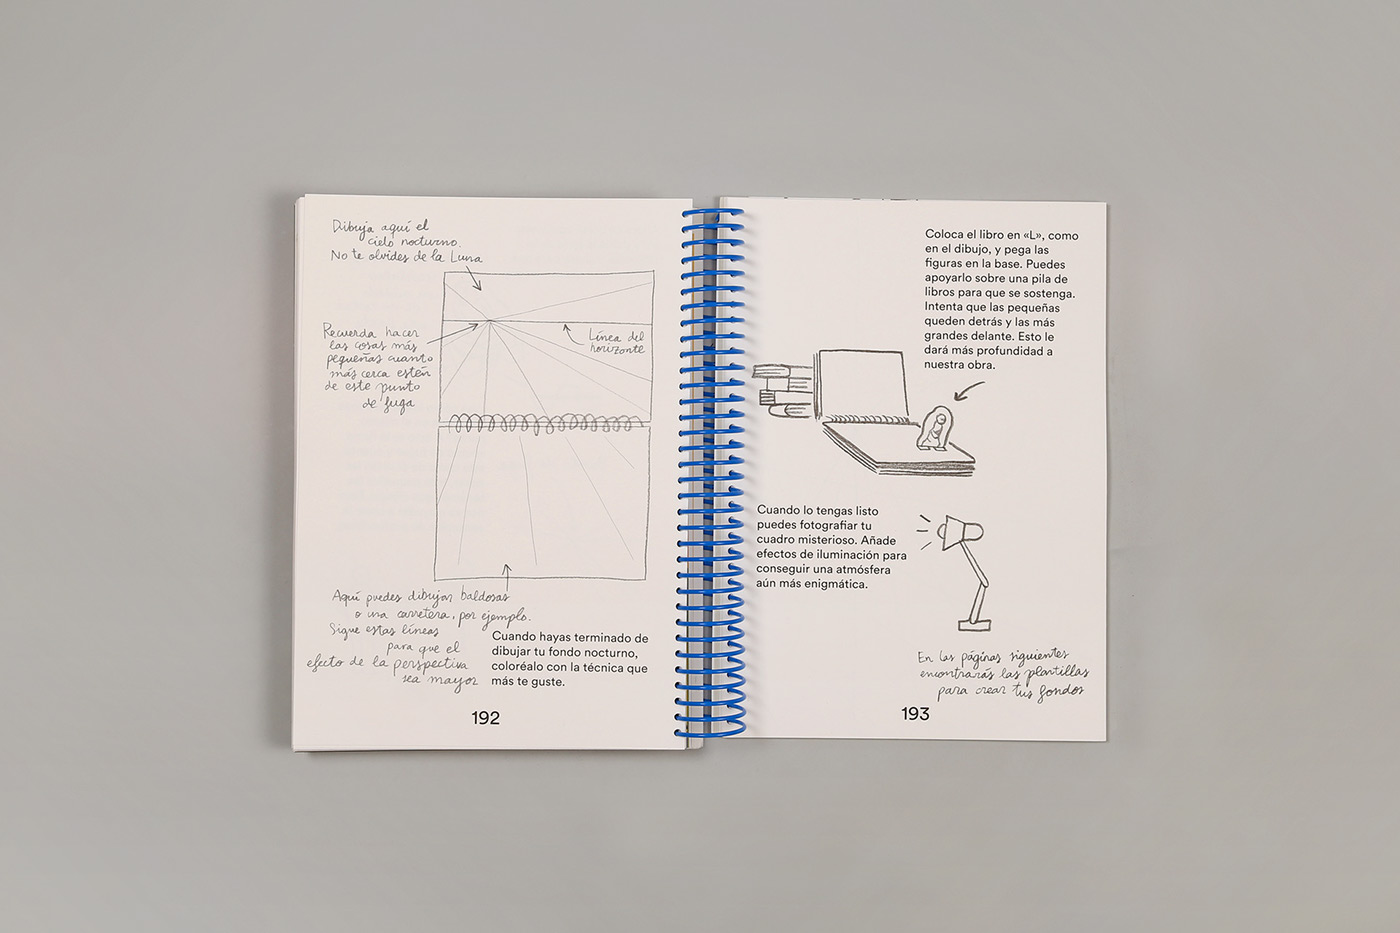 Dibuja aquí el
cielo nocturno.
No te olvides de la Luna
Recuerda hacer
las cosas más
pequeñas cuanto
más cerca estén
de este punto
de fuga
Línea del
horizonte
Aquí puedes dibujar baldosas
o una carretera, por ejemplo.
Sigue estas líneas
para que el
efecto de la perspectiva
sea mayor
Cuando hayas terminado de
dibujar tu fondo nocturno,
coloréalo con la técnica que
más te guste.
192
Coloca el libro en «L», como
en el dibujo, y pega las
figuras en la base. Puedes
apoyarlo sobre una pila de
libros para que se sostenga.
Intenta que las pequeñas
queden detrás y las más
grandes delante. Esto le
dará más profundidad a
nuestra obra.
Cuando lo tengas listo
puedes fotografiar tu
cuadro misterioso. Añade
efectos de iluminación para
conseguir una atmósfera
aún más enigmática.
En las páginas siguientes
encontrarás las plantillas
para crear tus fondos
193